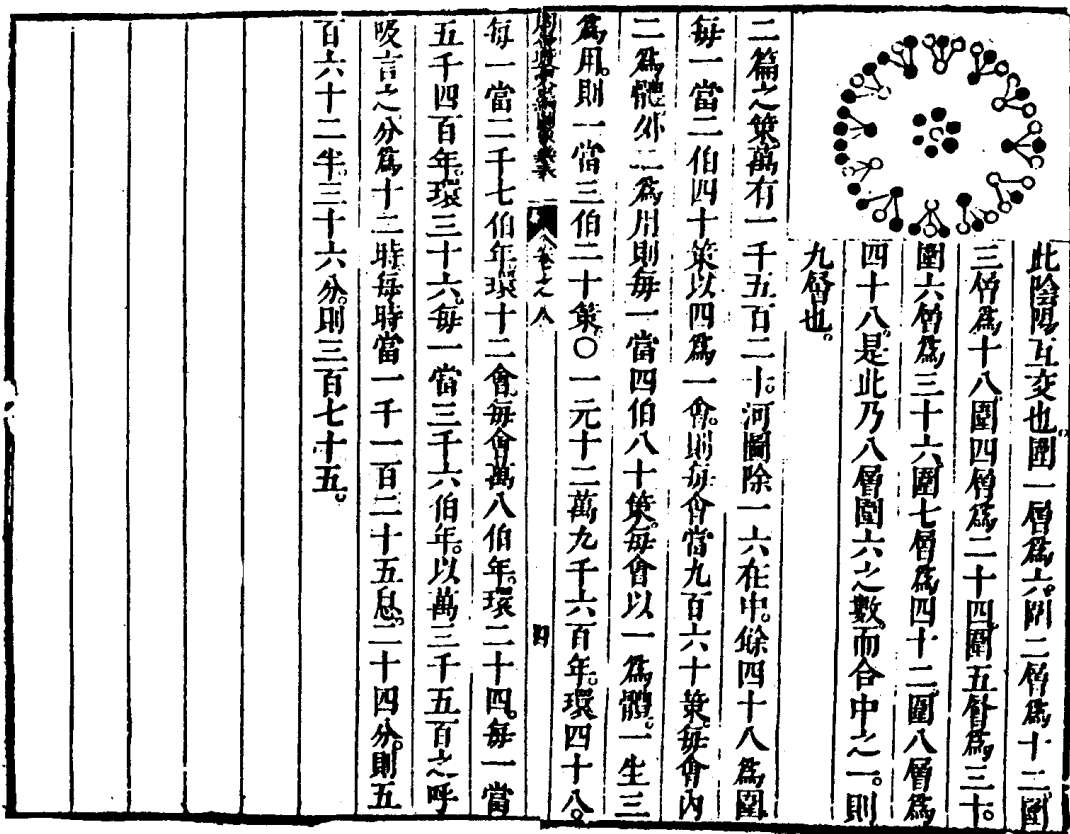 此陰陽互交也。圍一層爲六。圍二層爲十二。圍
三層爲十八。圍四層爲二十四。圍五層爲三十。
圍六層爲三十六。圍七層爲四十二。圍八層爲
四十八。是此乃八層圍六之數。而合中之一。則
九層也。
二篇之策萬有一千五百二十。河圖除一六在中。餘四十八爲圍
每一當二伯四十策以四爲一會。則每會當九百六十策。每會內
二爲體外二爲用則每一當四伯八十策。每會以一爲體。一生三
爲用。則一當三伯二十策。○一元十二萬九千六百年。環四十八。
周易時論合編圖象幾表 卷之八 四
每一當二千七伯年。環十二會。每會萬八伯年。環二十四。每一當
五千四百年。環三十六。每一當三千六伯年。以萬三千五百之呼
吸言之分爲十二時。每時當一千一百二十五息。二十四分。則五
百六十二半。三十六分。則三百七十五。